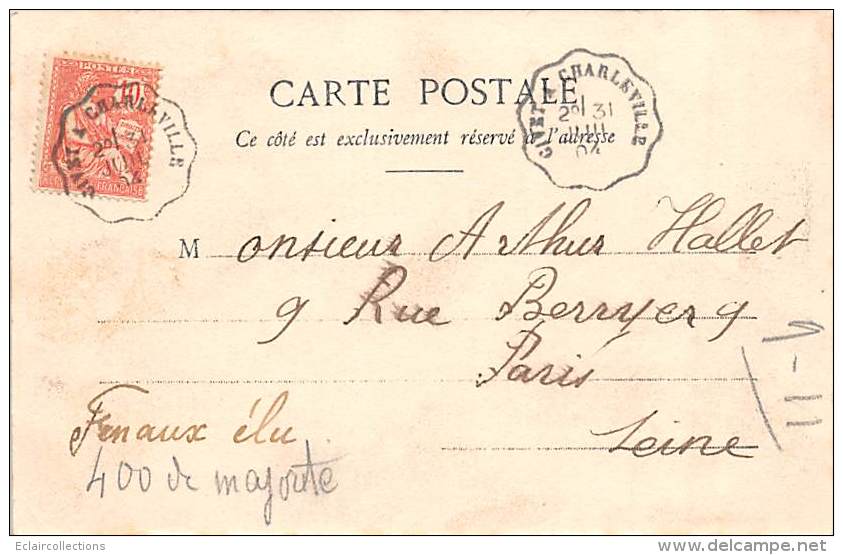 POSTES
10
FRANÇAISE
GIVET A CHARLEVILLE
2º 31
JUIL
04
CARTE POSTALE
GIVET A CHARLEVILLE
2º 31
JUIL
04
Ce côté est exclusivement réservé à l'adresse
Monsieur Arthur Hallet
9 Rue Berryer 9
Paris
Seine
Fenaux élu.
400 de majorite
Eclaircollections
www.delcampe.net